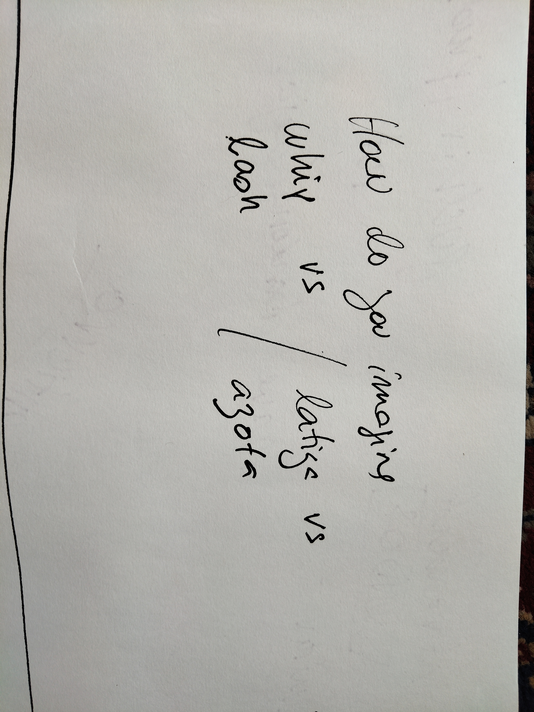 How do you imagine
whip vs / latige vs
lash azota